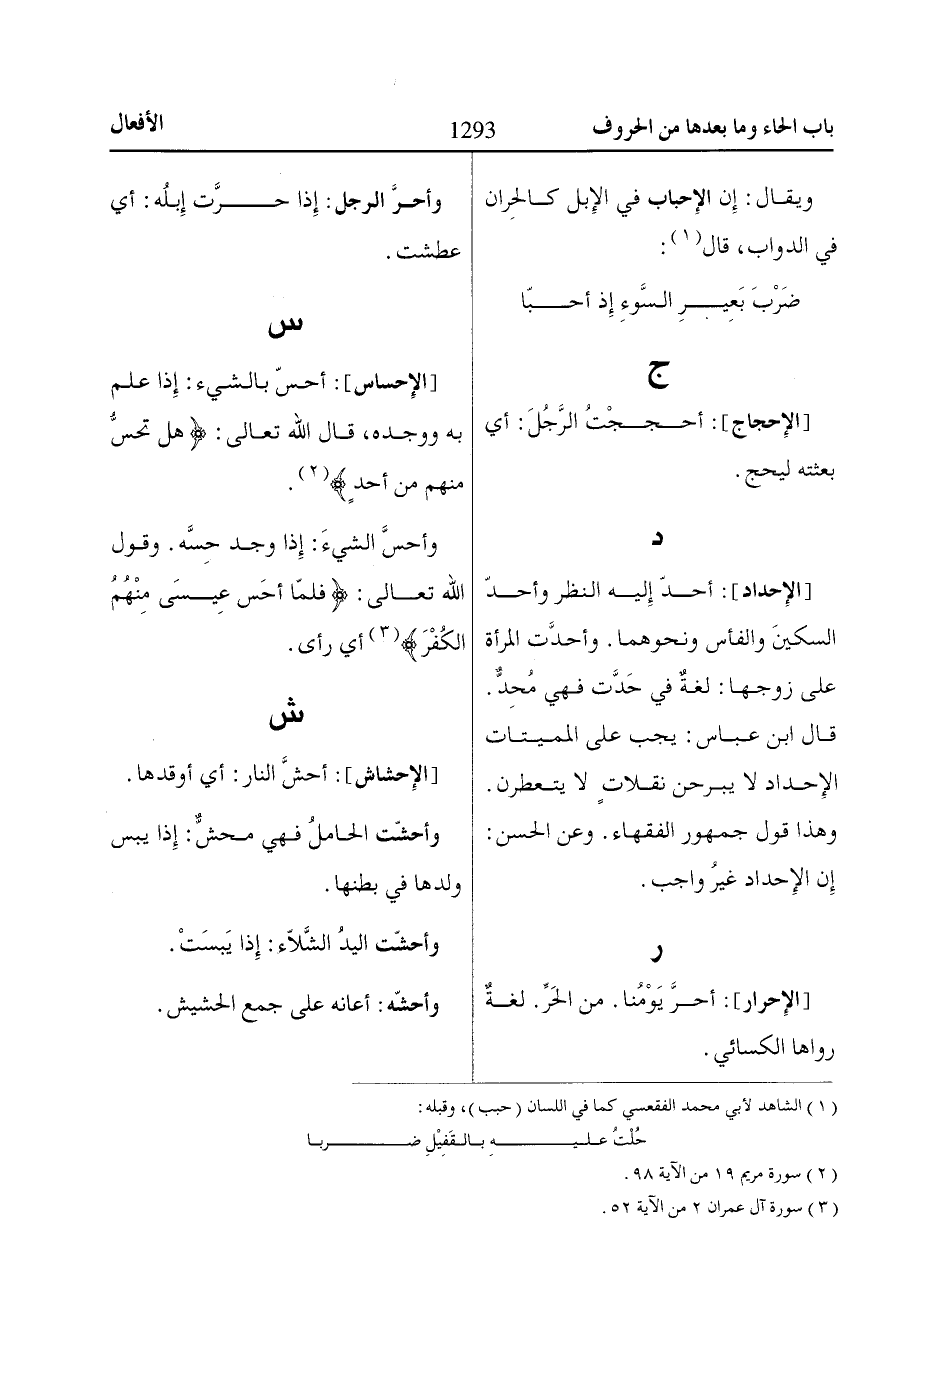 باب الحاء وما بعدها من الحروف
1293
الأفعال
ويقال: إن الإحباب في الإبل كالحِران
في الدواب، قال(١):
ضَرْبَ بَعِيرِ السَّوءِ إذ أحبّا
ج
[الإحجاج]: أحججْتُ الرَّجُلَ: أي
بعثته ليحج.
د
[الإحداد]: أحدّ إليه النظر وأحدّ
السكينَ والفأس ونحوهما. وأحدَّت المرأة
على زوجها: لغةٌ في حَدَّت فهي مُحِدٌّ.
قال ابن عباس: يجب على المميتات
الإحداد لا يبرحن نقلاتٍ لا يتعطرن.
وهذا قول جمهور الفقهاء. وعن الحسن:
إن الإحداد غيرُ واجب.
ر
[الإحرار]: أحرَّ يَوْمُنا. من الحَرِّ. لغةٌ
رواها الكسائي.
وأحرَّ الرجل: إذا حرَّت إبلُه: أي
عطشت.
س
[الإحساس]: أحسّ بالشيء: إذا علم
به ووجده، قال الله تعالى: ﴿هل تحسُّ
منهم من أحدٍ﴾(٢).
وأحسَّ الشيءَ: إذا وجد حِسَّه. وقول
الله تعالى: ﴿فلمّا أحَس عِيسَى مِنْهُمُ
الكُفْرَ﴾(٣) أي رأى.
ش
[الإحشاش]: أحشَّ النار: أي أوقدها.
وأحشّت الحاملُ فهي محشٌّ: إذا يبس
ولدها في بطنها.
وأحشّت اليدُ الشَّلاّء: إذا يَبِسَتْ.
وأحشّه: أعانه على جمع الحشيش.
(١) الشاهد لأبي محمد الفقعسي كما في اللسان (حبب)، وقبله:
حُلْتُ عليهِ بالقَفيْلِ ضربا
(٢) سورة مريم ١٩ من الآية ٩٨.
(٣) سورة آل عمران ٢ من الآية ٥٢.